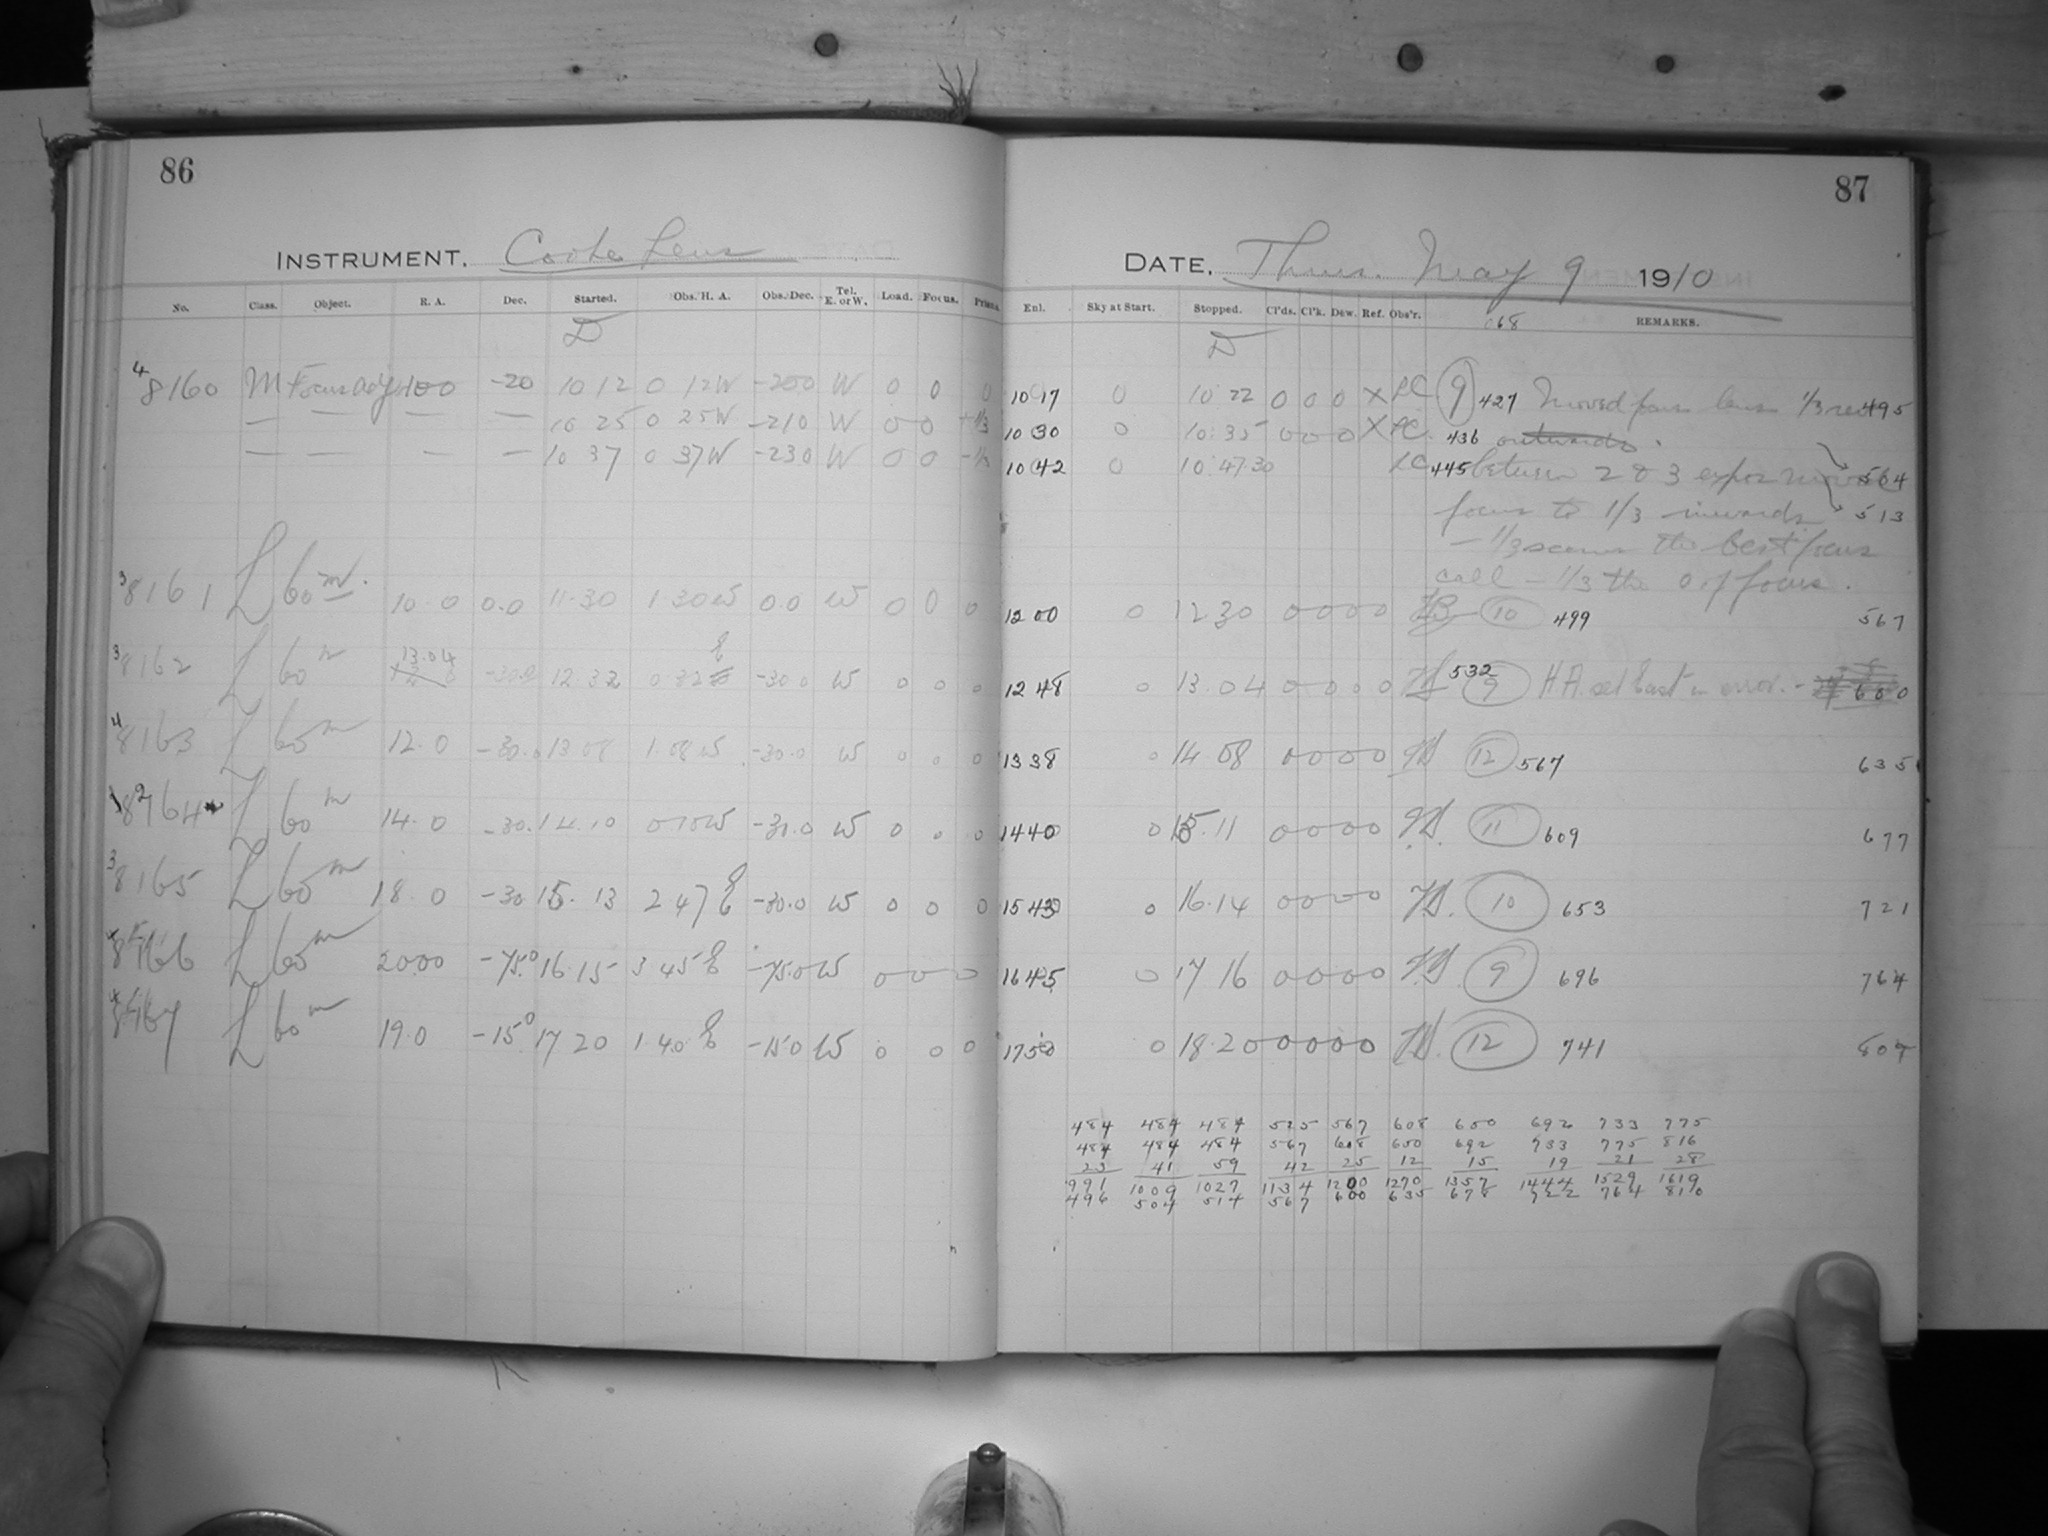 86
INSTRUMENT. Cooke Lens
No. Class. Object. R. A. Dec. Started. Obs. H. A. Obs. Dec. Tel. E. or W. Load. Focus. Prism
D
4 8160 M Focus adj 100 -20 10 12 0 12W -200 W 0 0 0
— — — — 10 25 0 25W -210 W 0 0 +1/3
— — — — 10 37 0 37W -230 W 0 0 -1/3
3 8161 L 60m. 10.0 0.0 11.30 1.30W 0.0 W 0 0 0
3 8162 L 60m 13.04 -30.0 12.32 0.32 E -30.0 W 0 0 0
4 8163 L 60m 12.0 -30.0 13 08 1.08W -30.0 W 0 0 0
2 8164 L 60m 14.0 -30. 14.10 010W -30.0 W 0 0 0
3 8165 L 60m 18.0 -30 15.13 2 47 E -30.0 W 0 0 0
8166 L 60m 20.00 -75.0 16.15 3 45 E -75.0 W 0 0 0
4 8167 L 60m 19.0 -15.0 17 20 1.40 E -15.0 W 0 0 0
87
DATE. Thurs. May 9 1910
Enl. Sky at Start. Stopped. Cl'ds. Cl'k. Dew. Ref. Obs'r. 068 REMARKS.
D
10 17 0 10 22 0 0 0 X LC 9 427 Moved four lens 1/3 495
10 30 0 10:35 0 0 0 X LC. 436 outwards.
10 42 0 10 47.30 LC 445 between 2 & 3 expos moved 504
focus to 1/3 inwards 513
- 1/3 seems the best focus
call - 1/3 the 0 of focus.
12 00 0 12 30 0 0 0 0 10 499 567
12 48 0 13.04 0 0 0 0 532 9 H A. set East in error. - 600
13 38 0 14 08 0 0 0 0 12 567 635
14 40 0 15.11 0 0 0 0 11 609 677
15 43 0 16.14 0 0 0 0 10 653 721
16 45 0 17 16 0 0 0 0 9 696 764
17 50 0 18.20 0 0 0 0 12 741 809
484 484 484 525 567 608 650 692 733 775
484 484 484 567 608 650 692 733 775 816
23 41 59 42 25 12 15 19 21 28
991 1009 1027 1134 1200 1270 1357 1444 1529 1619
496 504 514 567 600 635 678 722 764 810